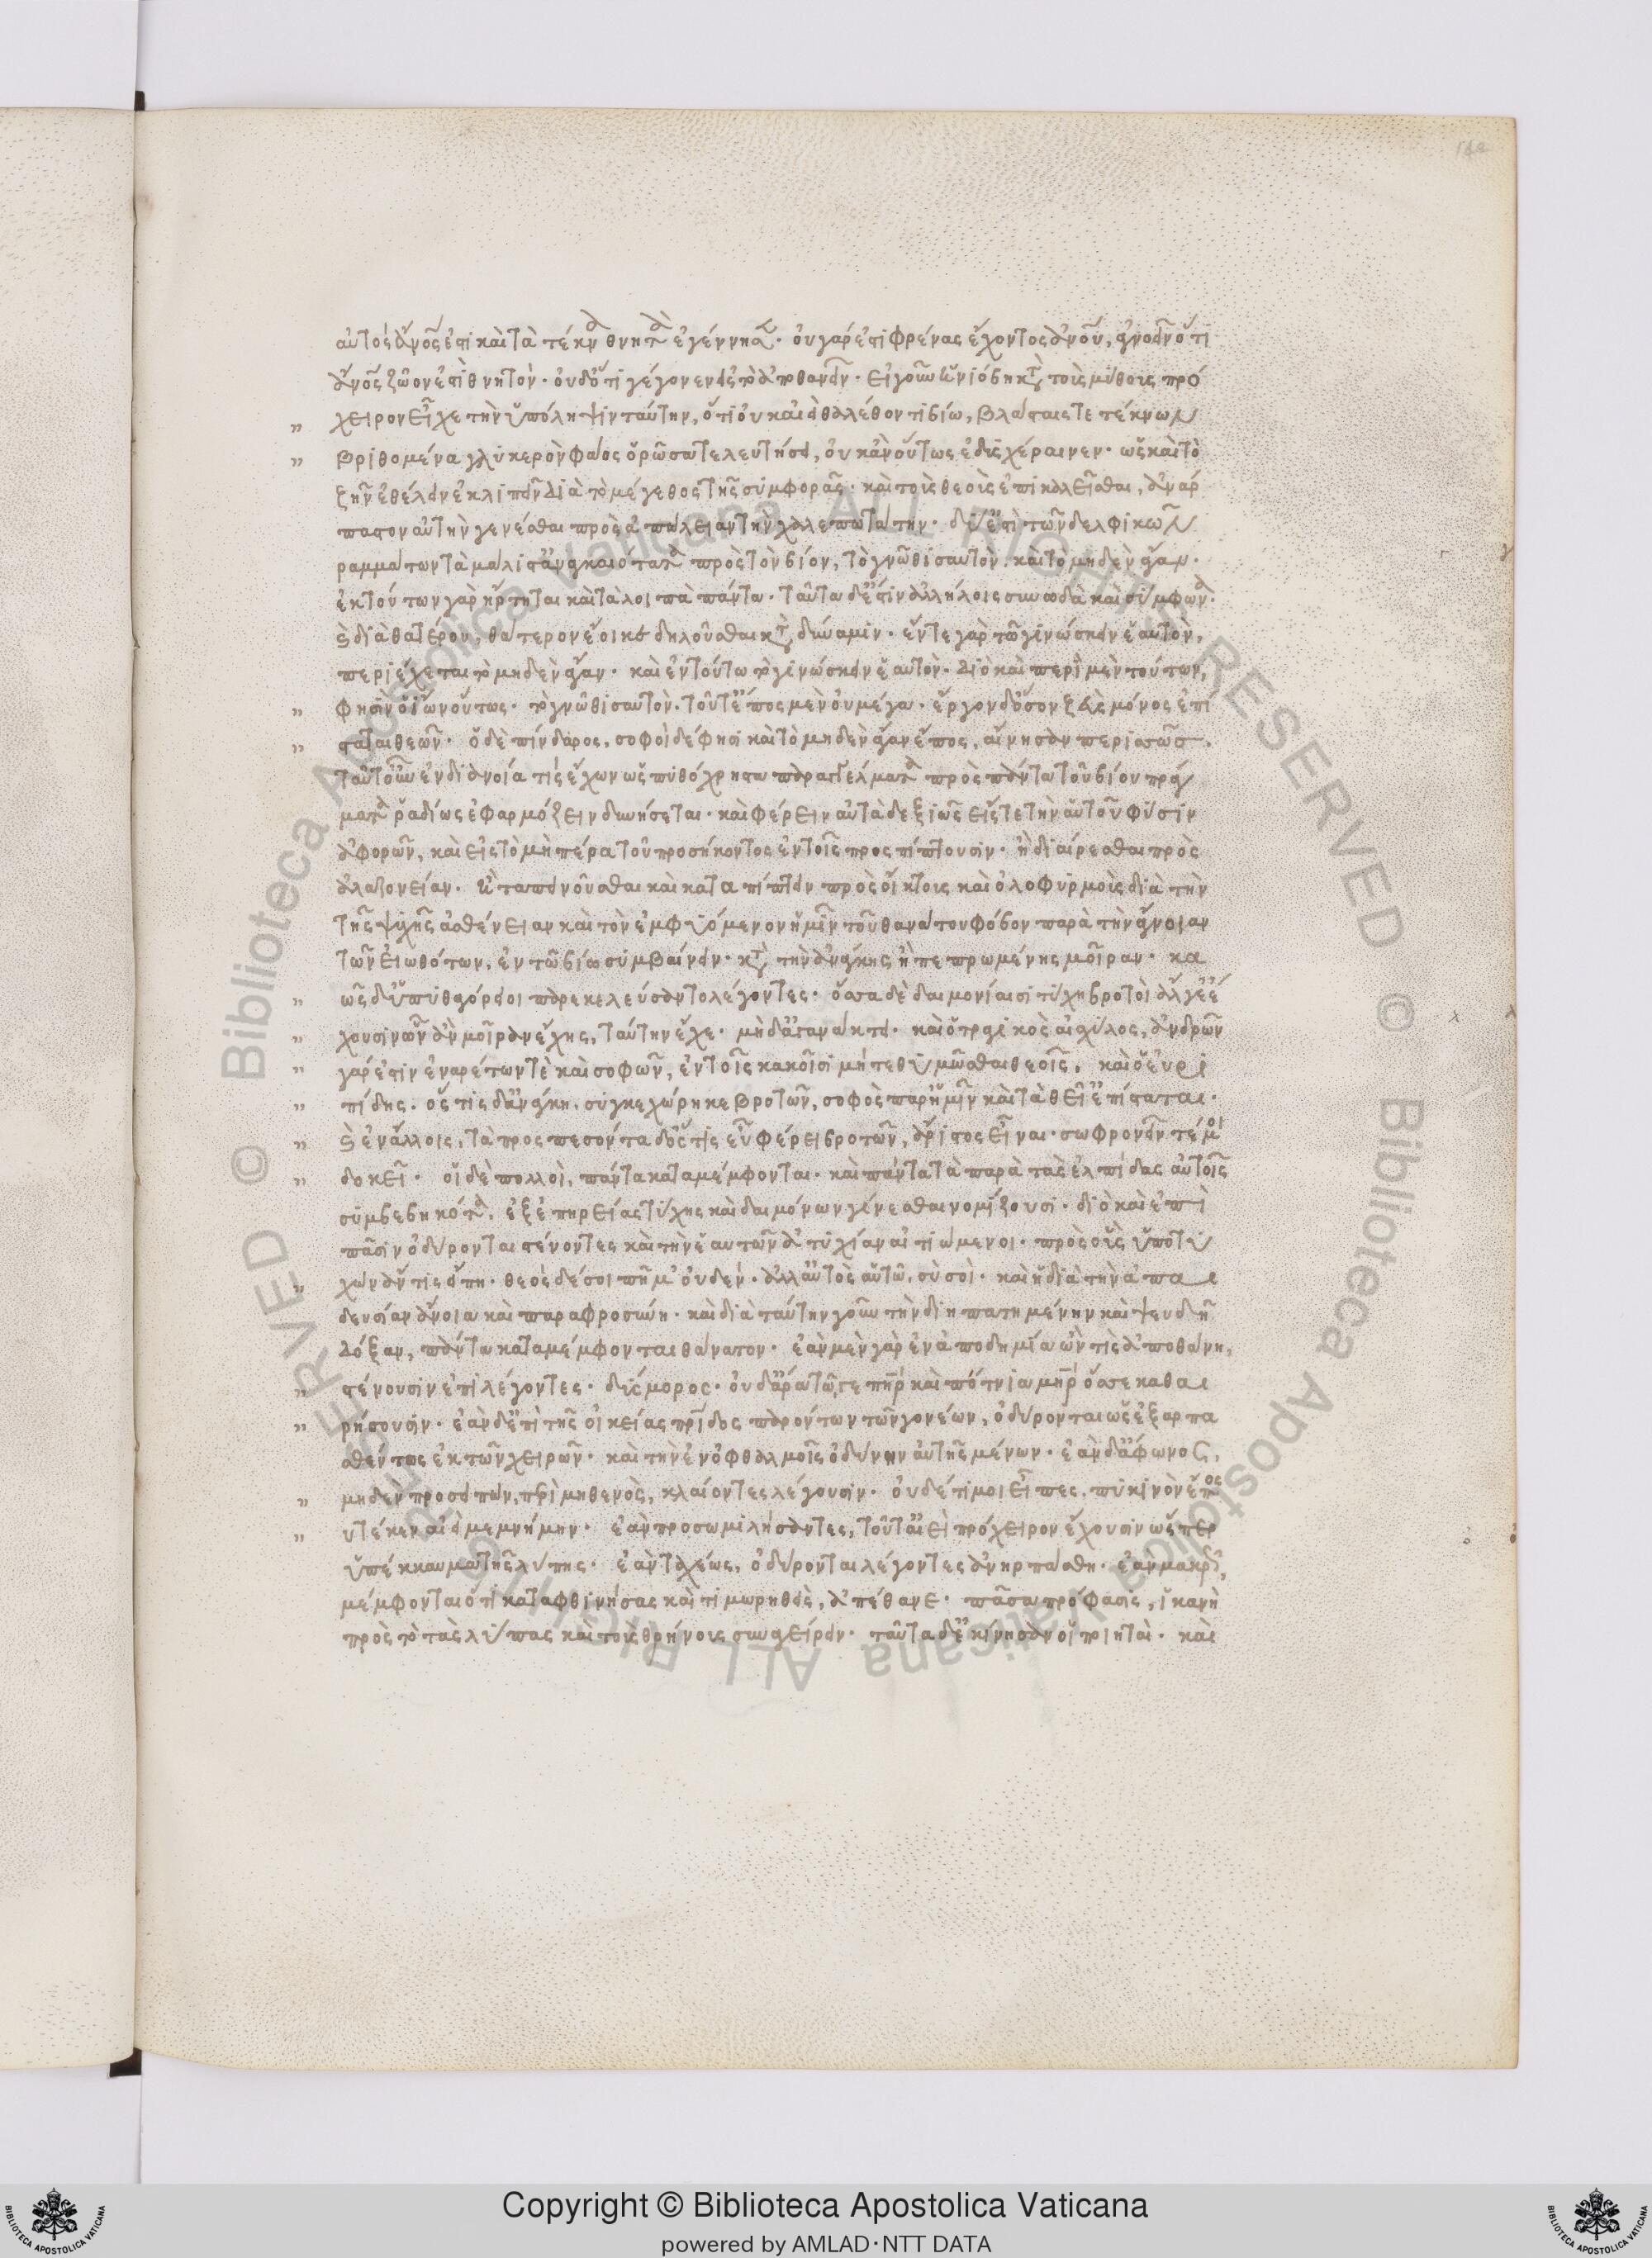 αὐτός ἄνος ἐστὶ καὶ τὰ τέκνα θνητὰ ἐγέννησε· οὐ γάρ ἐστι φρένας ἔχοντος ἀνοῦ, ἀγνοεῖν ὅτι
ἄνος ζῶον ἐστὶ θνητὸν· οὐδ ὅτι γέγονεν εἰς τὸ ἀποθανεῖν· εἰ γοῦν ἡ νιόβη κτ τοὺς μύθους πρό
χειρον εἶχε τὴν ὑπόληψιν ταύτην, ὅτι οὐκ αἰεὶ θαλέθοντι βίω, βλάσταις τε τέκνων
βριθομένα γλυκερὸν φάος ὁρῶσα τελευτήσει, οὐκ ἂν οὕτως ἐδυσχέραινεν· ὡς καὶ τὸ
ζῆν ἐθέλειν ἐκλιπεῖν διὰ τὸ μέγεθος τῆς συμφορᾶς· καὶ τοὺς θεοὺς ἐπικαλεῖσθαι, ἀνάρ
παστον αὐτὴν γενέσθαι πρὸς ἀπώλειαν τὴν χαλεπωτάτην· δύ ἐστὶ τῶν δελφικῶν
ραμμάτων τὰ μάλιστ ἀναγκαιότατα πρὸς τὸν βίον, τὸ γνῶθι σαυτὸν. καὶ τὸ μηδὲν ἄγαν·
ἐκ τούτων γὰρ ἤρτηται καὶ τἆλοιπὰ πάντα· ταῦτα δ ἐστὶν ἀλλήλοις συνωδὰ καὶ σύμφωνα·
καὶ διὰ θατέρου, θάτερον ἔοικε δηλοῦσθαι κτ δύναμιν· ἔν τε γὰρ τῶ γινώσκειν ἑαυτὸν,
περιέχεται τὸ μηδὲν ἄγαν· καὶ ἐν τούτω τὸ γινώσκειν ἑαυτὸν· διὸ καὶ περὶ μὲν τούτων,
φησὶν ὁ ἴων οὕτως· τὸ γνῶθι σαυτὸν. τοῦτ ἔπος μὲν οὐ μέγα· ἔργον δ ὅσον ζεὺς μόνος ἐπί
σταται θεῶν· ὁ δὲ πίνδαρος, σοφοὶ δέ φησι καὶ τὸ μηδὲν ἄγαν ἔπος, αἴνησαν περισσῶς.
ταῦτ οὖν ἐν διανοία τίς ἔχων ὡς πυθόχρηστα παραγγέλματα πρὸς πάντα τοῦ βίου πράγ
ματα ῥαδίως ἐφαρμόζειν δυνήσεται· καὶ φέρειν αὐτὰ δεξιῶς εἴς τε τὴν αὑτοῦ φύσιν
ἀφορῶν, καὶ εἰς τὸ μὴ πέρα τοῦ προσήκοντος ἐν τοῖς προσπίπτουσιν· ἢ διαίρεσθαι πρὸς
ἀλαζονείαν· ἢ ταπεινοῦσθαι καὶ καταπίπτειν πρὸς οἴκτους καὶ ὀλοφυρμοὺς διὰ τὴν
τῆς ψυχῆς ἀσθένειαν καὶ τὸν ἐμφυόμενον ἡμῖν τοῦ θανάτου φόβον παρὰ τὴν ἄγνοιαν
τῶν εἰωθότων, ἐν τῶ βίω συμβαίνειν· κτ τὴν ἀνάγκης ἢ πεπρωμένης μοῖραν· κα
ὡς δ οἱ πυθαγόρειοι παρεκελεύσαντο λέγοντες· ὅσα δὲ δαιμονίαισι τύχης βροτοὶ ἄλγε ἔ
χουσιν ὧν ἂν μοῖραν ἔχης, ταύτην ἔχε· μηδ ἀγανάκτει· καὶ ὁ τραγικὸς αἰσχύλος, ἀνδρῶν
γάρ ἐστιν ἐναρέτων τὲ καὶ σοφῶν, ἐν τοῖς κακοῖσι μή τεθυμῶσθαι θεοῖς, καὶ ὁ εὐρι
πίδης. ὅς τις δ ἀνάγκη. συγκεχώρηκε βροτῶν, σοφὸς παρ ἡμῖν καὶ τὰ θεῖ ἐπίσταται·
καὶ ἐν ἄλλοις, τὰ προσπεσόντα δ ὅς τις εὖ φέρει βροτῶν, ἄριστος εἶναι· σωφρονεῖν τέ μοι
δοκεῖ· οἱ δὲ πολλοὶ, πάντα καταμέμφονται· καὶ πάντα τὰ παρὰ τὰς ἐλπίδας αὐτοῖς
συμβεβηκότα, ἐξ ἐπηρείας τύχης καὶ δαιμόνων γένεσθαι νομίζουσι· διὸ καὶ ἐπὶ
πᾶσιν ὀδύρονται στένοντες καὶ τὴν ἑαυτῶν ἀτυχίαν αἰτιώμενοι· πρὸς οὓς ὑποτυ
χὼν ἄν τις εἴπη· θεὸς δέ σοι πῆμ' οὐδεὶν· ἀλλ αὐτὸς αὑτῶ, σὺ σοὶ· καὶ ἡ διὰ τὴν ἀπαι
δευσίαν ἄνοια καὶ παραφροσύνη· καὶ διὰ ταύτην γοῦν τὴν διηπατημένην καὶ ψευδῆ
δόξαν, πάντα καταμέμφονται θάνατον· ἐὰν μὲν γὰρ ἐν ἀποδημία ὢν τὶς ἀποθάνη,
στένουσιν ἐπιλέγοντες· δύσμορος· οὐδ ἄρα τῶ γε πηρ καὶ πότνια μηρ ὄσσε καθαι
ρήσουσιν· ἐὰν δ ἐπὶ τῆς οἰκείας πρίδος παρόντων τῶν γονέων, ὀδύρονται ὡς ἐξαρπα
σθέντος ἐκ τῶν χειρῶν· καὶ τὴν ἐν ὀφθαλμοῖς ὀδύνην αὐτῆς μένων· ἐὰν δ ἄφωνος,
μηδὲν προσειπὼν, περὶ μηθενὸς, κλαίοντες λέγουσιν· οὐδέ τί μοι εἶπες, πυκινὸν ἔπος
υτέ κεν αἰεὶ μεμνήμην· ἐὰν προσωμιλήσαντες, τοῦτ αἰεὶ πρόχειρον ἔχουσιν ὥσπερ
ὑπέκκαυμα τῆς λύπης· ἐὰν ταχέως, ὀδύρονται λέγοντες ἀνηρπάσθη· ἐὰν μακρῶς,
μέμφονται ὅτι καταφθινήσας καὶ τιμωρηθεὶς, ἀπέθανε· πᾶσα πρόφασις, ἱκανὴ
πρὸς τὸ τὰς λύπας καὶ τοὺς θρήνους συναγείρειν· ταῦτα δ ἐκίνησαν οἱ ποιηταὶ· καὶ
Copyright © Biblioteca Apostolica Vaticana
powered by AMLAD·NTT DATA